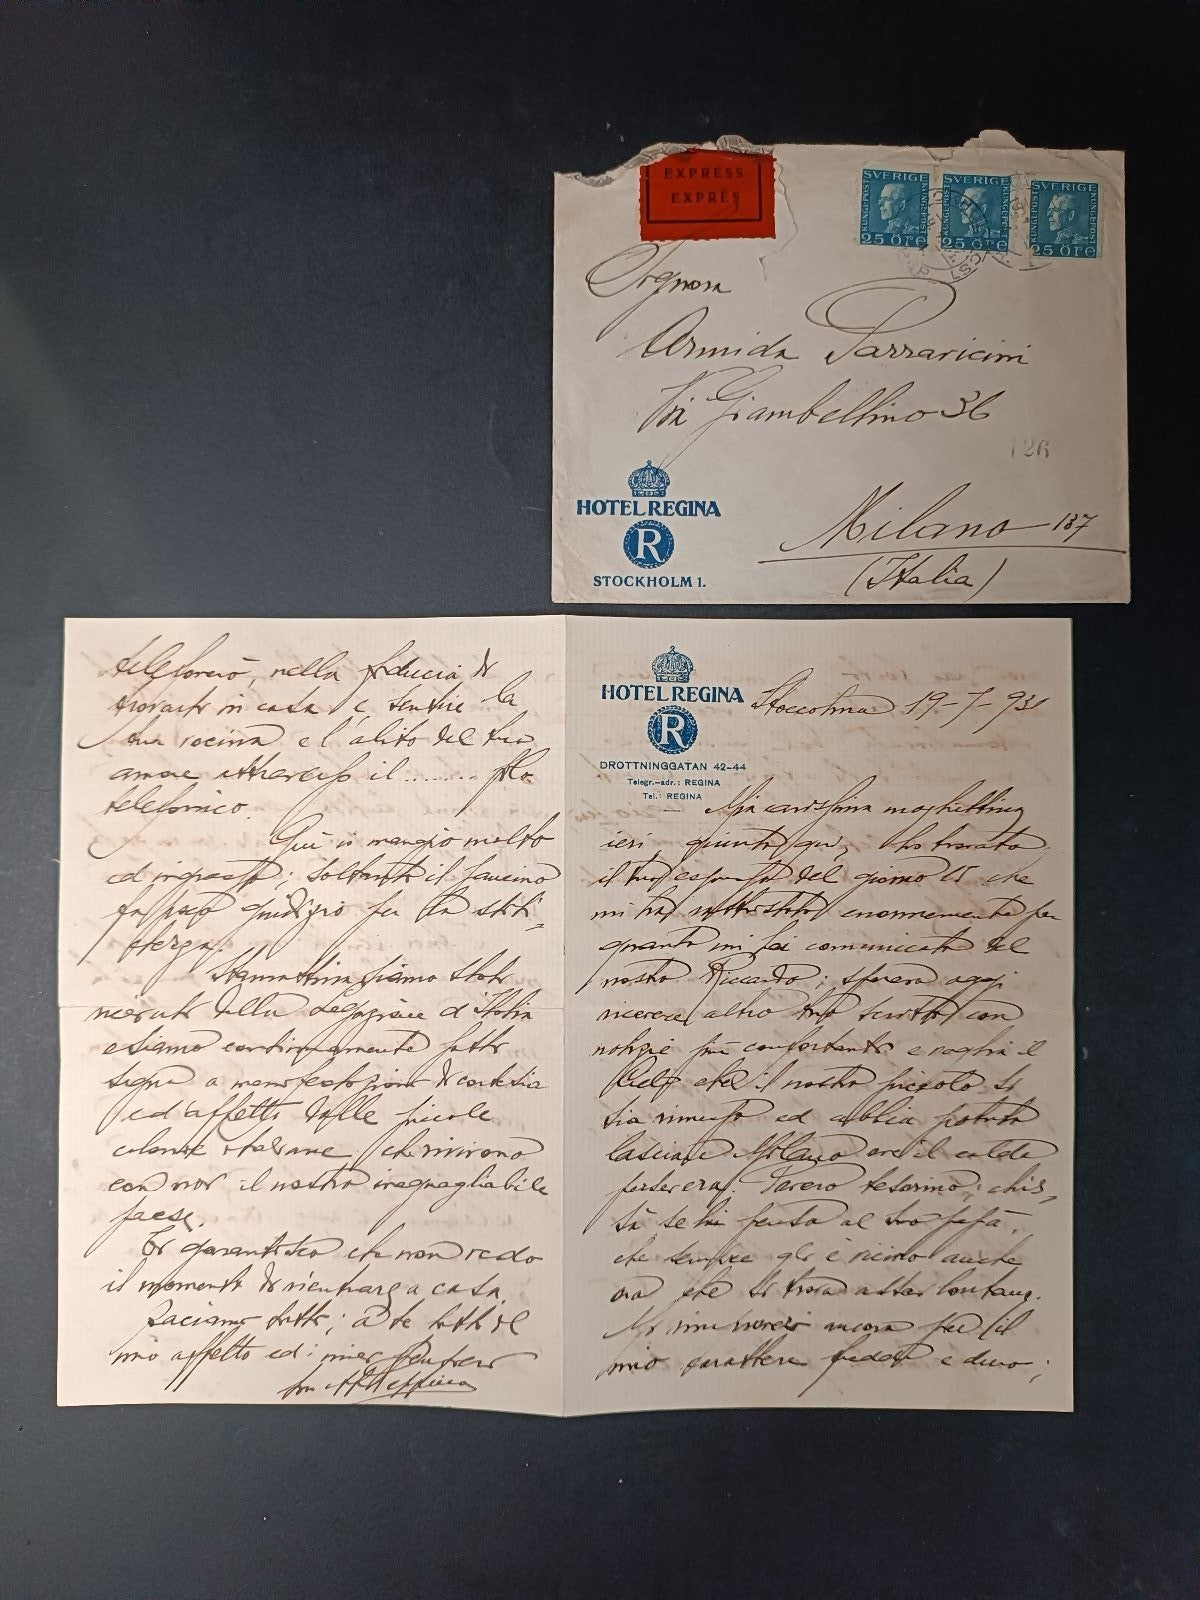 EXPRESS
EXPRÈS
SVERIGE SVERIGE SVERIGE
KUNGEPOST KUNGEPOST KUNGEPOST
25 ÖRE 25 ÖRE 25 ÖRE
Signora
Armida Parravicini
Via Giambellino 36
126
Milano 137
(Italia)
HOTEL REGINA
R
STOCKHOLM 1.
HOTEL REGINA
R
DROTTNINGGATAN 42-44
Telegr.-adr.: REGINA
Tel.: REGINA
Stoccolma 19-7-931
Mia carissima moghettina
ieri giunto qui, ho trovato
il tuo espresso del giorno 15 che
mi ha rattristato enormemente per
quanto mi fai comunicato del
nostro Riccardo; speravo oggi
ricevere altro tuo scritto con
notizie più confortanti e voglia il
Cielo che il nostro piccolo si
sia rimesso ed abbia potuto
lasciare Milano ove il caldo
persevera. Povero tesorino; chis-
sà se lui pensa al suo papà,
che sempre gli è vicino anche
ora che si trova assai lontano.
ancora per il
mio carattere freddo e duro;
telefonerò, nella fiducia di
trovarti in casa e sentire la
tua vocina e l'alito del tuo
amore attraverso il ........ filo
telefonico.
Qui si mangia molto
ed ingrasso; soltanto il
fa poco giudizio per la stiti-
Stamattina siamo stati
ricevuti dalla Legazione d'Italia
e siamo continuamente fatti
segno a manifestazioni di cortesia
ed affetto dalle piccole
colonie italiane che vivono
con noi il nostro ineguagliabile
paese.
Ti garantisco che non vedo
il momento di rientrare a casa.
Baciami tutti; a te tutto il
mio affetto ed i miei pensieri